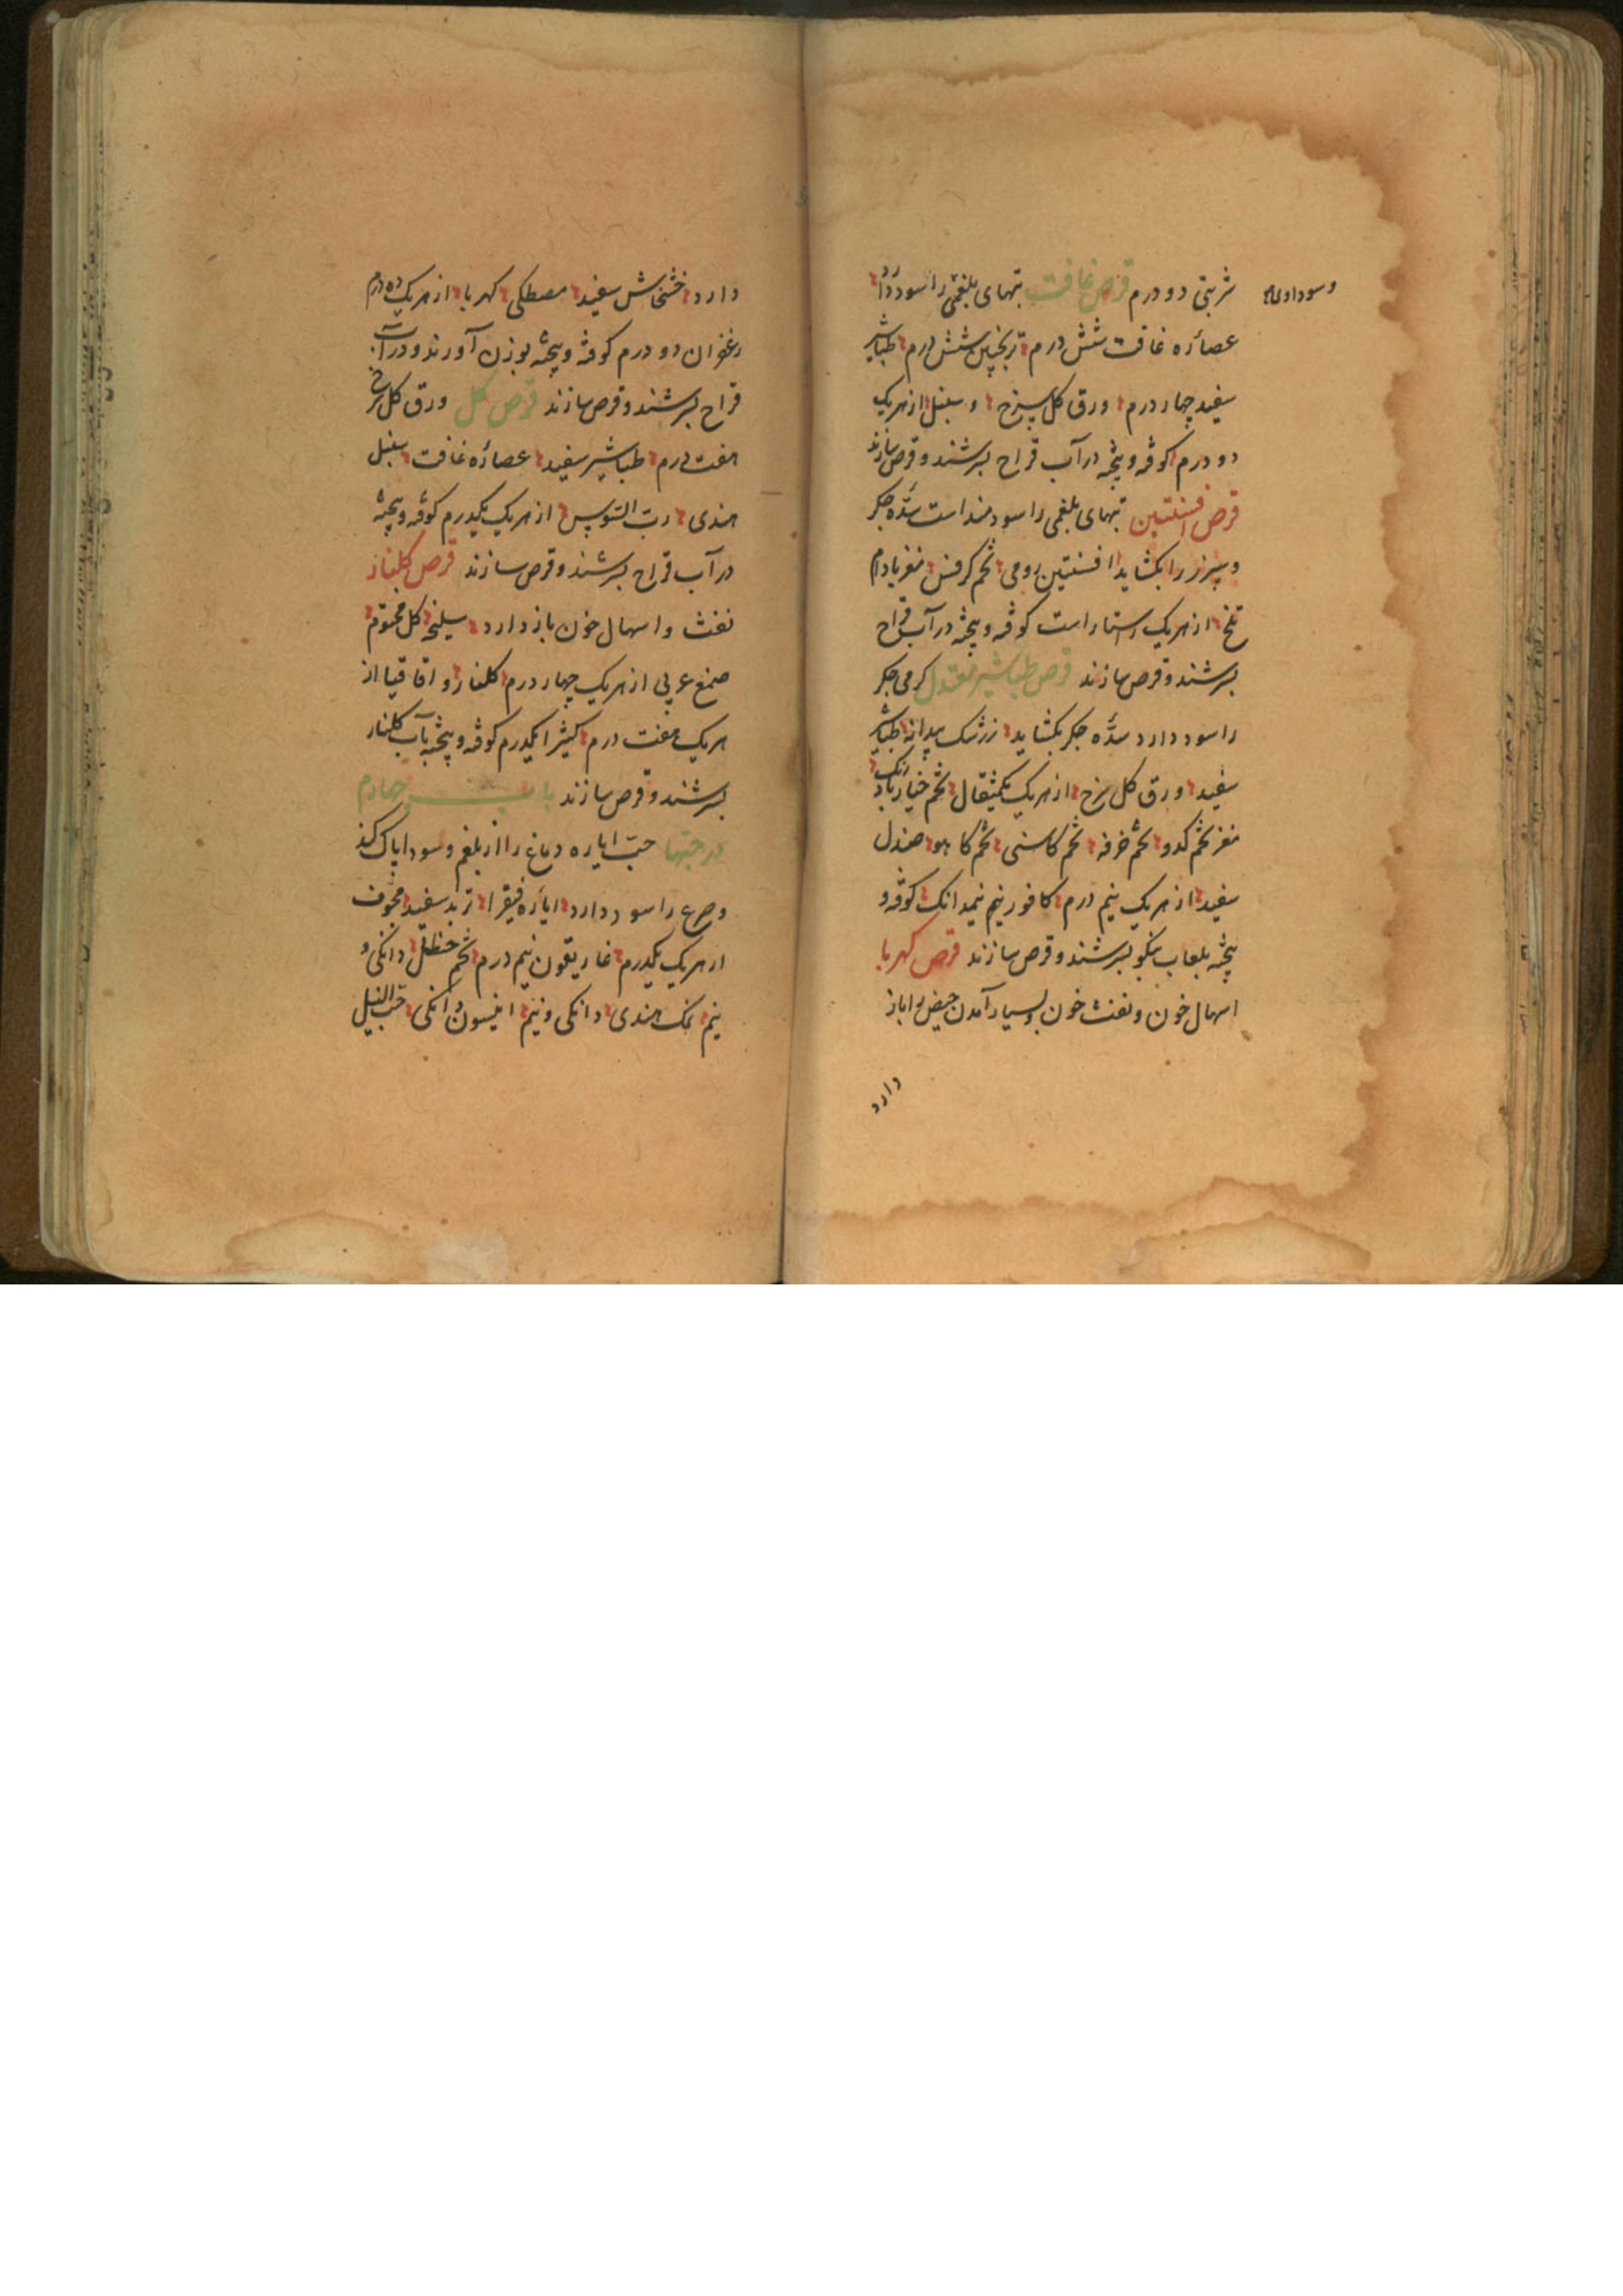 شربتی دو درم قرص غافت تبهای بلغمی را سود دارد
وسوداوی
عصاره غافت شش درم ترنجبین شش درم طباشیر
سفید چهار درم ورق کل سرخ و سنبل از هر یک
دو درم کوفته و پیخته در آب قراح بسرشند و قرص سازند
قرص افسنتین تبهای بلغمی را سودمند است سده جکر
و سپرز را بکشاید افسنتین رومی تخم کرفس مغز بادام
تلخ از هر یک راستا راست کوفته و پیخته در آب قراح
بسرشند و قرص سازند قرص طباشیر معتدل کرمی جکر
را سود دارد سده جکر بکشاید زرشک بیدانه طباشیر
سفید ورق کل سرخ از هر یک یکمثقال تخم خیار بادرنک
مغز تخم کدو تخم خرفه تخم کاسنی تخم کاهو صندل
سفید از هر یک نیم درم کافور نیم نیمدانک کوفته و
پیخته بلعاب بنکو بسرشند و قرص سازند قرص کهربا
اسهال خون و نفث خون و بسیار آمدن حیض را باز
دارد
دارد خشخاش سفید مصطکی کهربا از هر یک ده درم
زعفران دو درم کوفته و پیخته بوزن آورند و در آب
قراح بسرشند و قرص سازند قرص کل ورق کل سرخ
هفت درم طباشیر سفید عصاره غافت سنبل
هندی رب السوس از هر یک یکدرم کوفته و پیخته
در آب قراح بسرشند و قرص سازند قرص کلنار
نفث و اسهال خون باز دارد سلیخه کل مختوم
صمغ عربی از هر یک چهار درم کلنار و اقاقیا از
هر یک هفت درم کتیرا یکدرم کوفته و پیخته بآب کلنار
بسرشند و قرص سازند باب چهارم
در حبها حب ایاره دماغ را از بلغم و سودا پاک کند
و صرع را سود دارد ایاره فیقرا تربد سفید مجوف
از هر یک یکدرم غاریقون نیم درم تخم حنظل دانکی و
نیم نمک هندی دانکی و نیم انیسون دانکی حب النیل